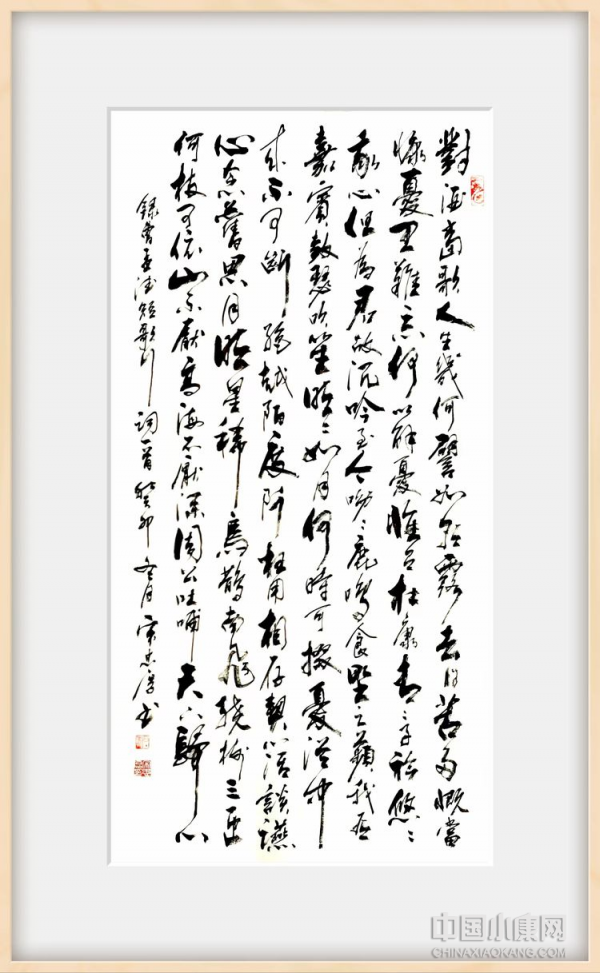 對酒當歌人生幾何譬如朝露去日苦多慨當
慷憂思難忘何以解憂惟有杜康青々子衿悠々
我心但為君故沉吟至今呦々鹿鳴食野之蘋我有
嘉賓鼓瑟吹笙明々如月何時可掇憂從中
來不可斷絕越陌度阡枉用相存契闊談讌
心念舊恩月明星稀烏鵲南飛繞樹三匝
何枝可依山不厭高海不厭深周公吐哺天下歸心
錄曹孟德短歌行詞一首癸卯冬月宋忠書
中国小康网
CHINAXIAOKANG.COM